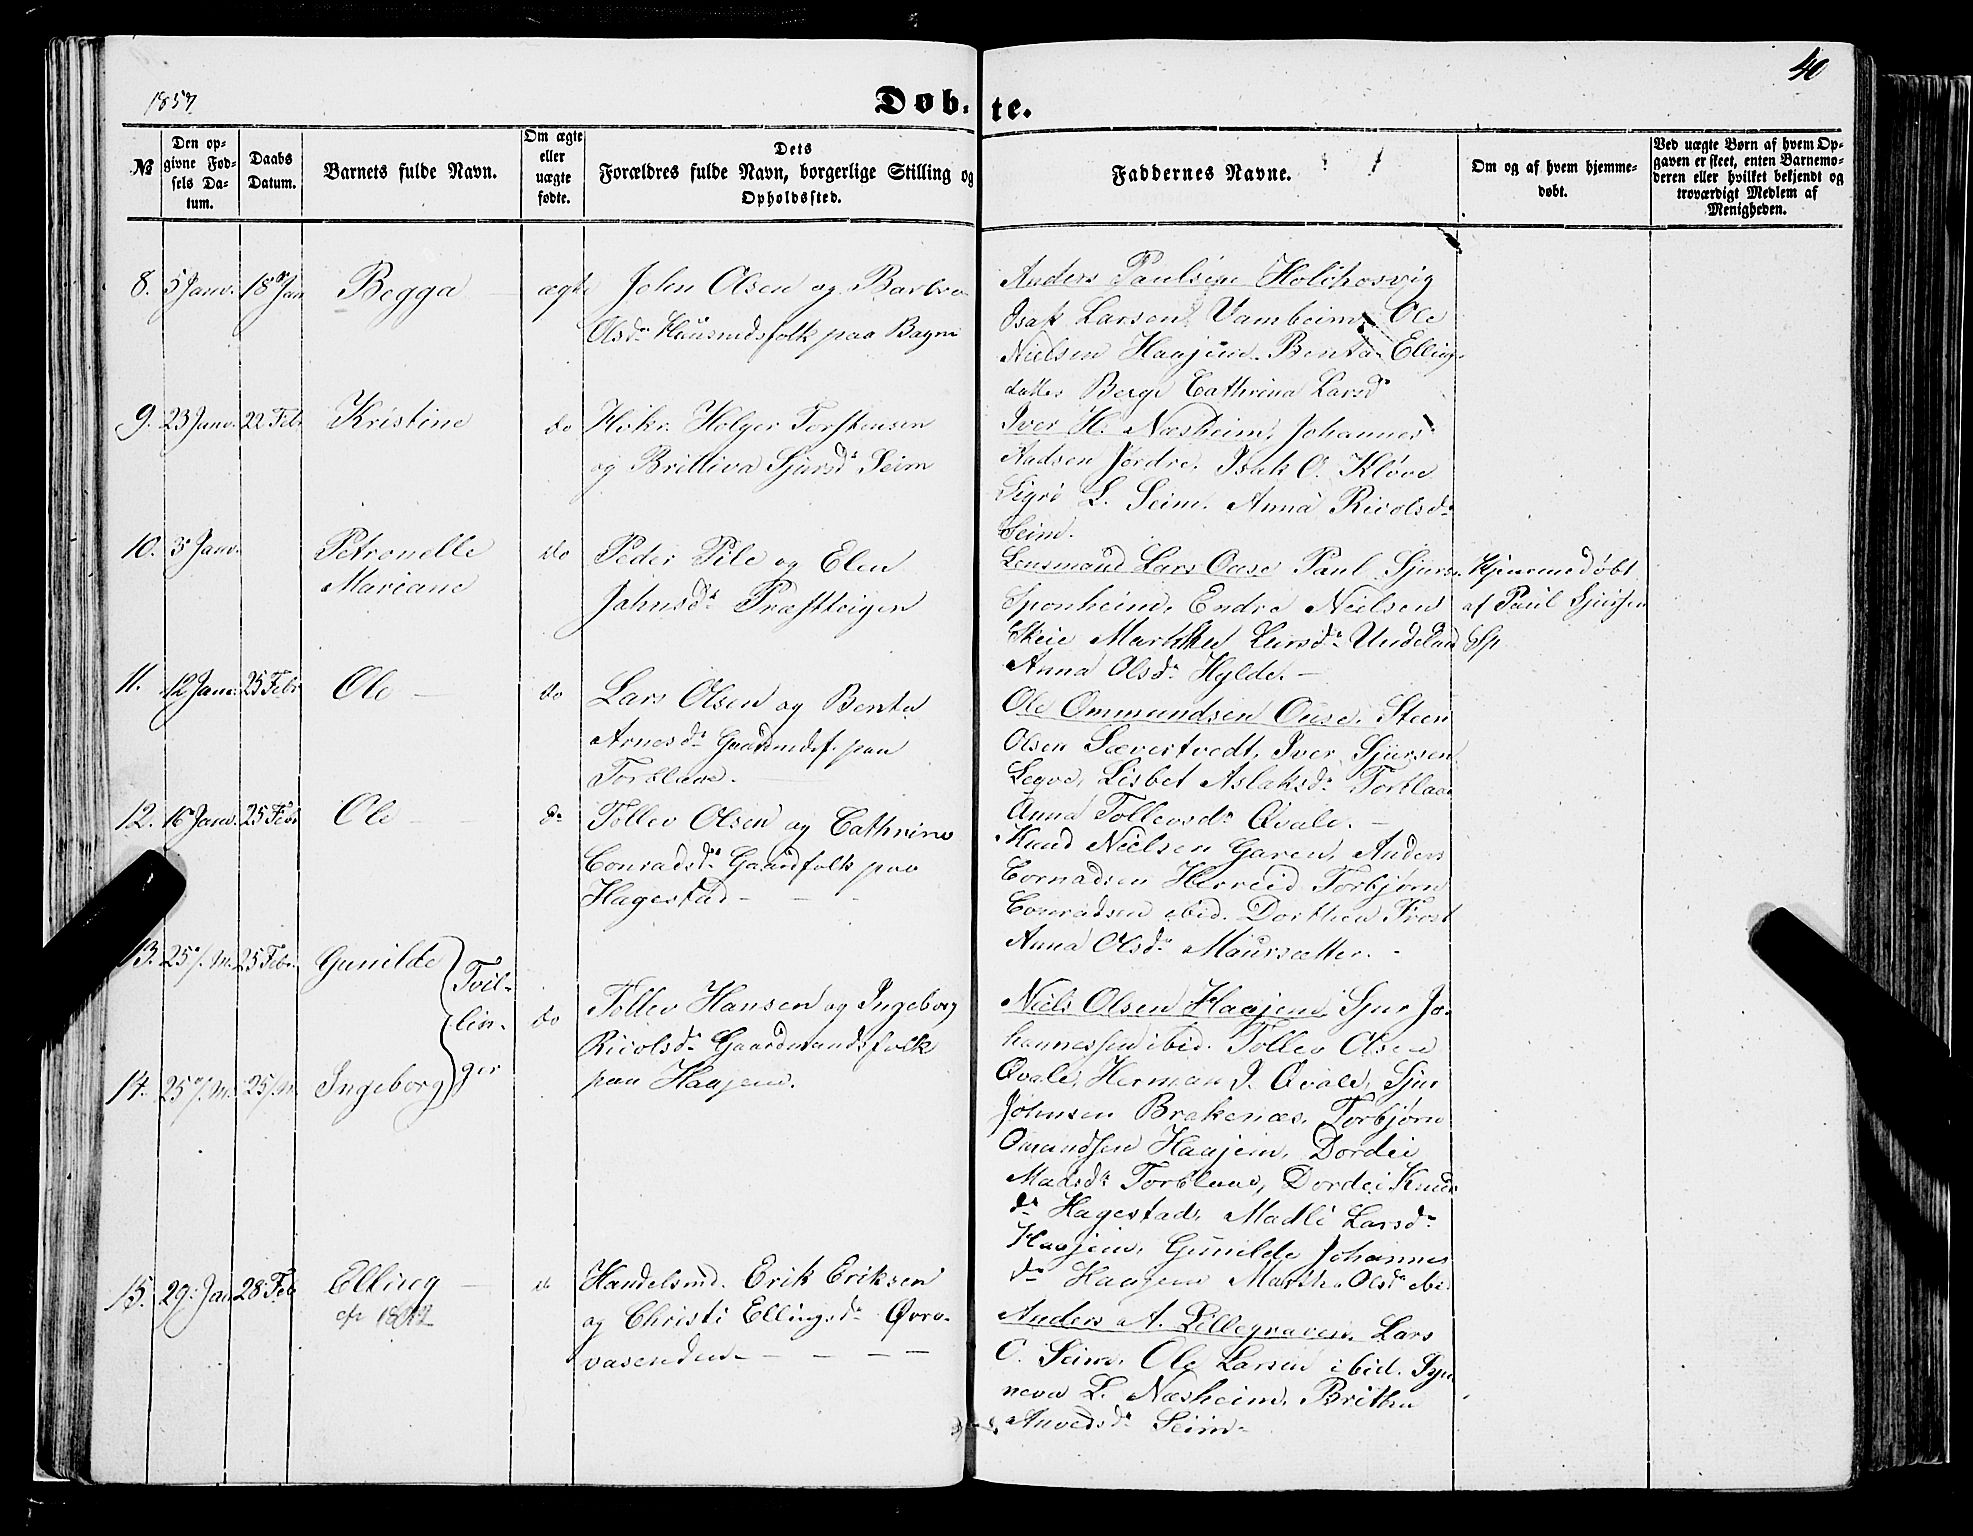 1857
40
Døb-te.
№
Den op-
givne Fød-
sels Da-
tum.
Daabs
Datum.
Barnets fulde Navn.
Om ægte
eller
uægte
fødte.
Dets
Forældres fulde Navn, borgerlige Stilling og
Opholdssted.
Faddernes Navne.
Om og af hvem hjemme-
døbt.
Ved uægte Børn af hvem Op-
gaven er skeet, enten Barnemo-
deren eller hvilket bekjendt og
troværdigt Medlem af
Menigheden.
8. 5 Janv. 18 Jan Begga ægte John Olsen og Barbro
Olsdr Huusmdsfolk paa
Anders Paulsen Holthosvig
Isak Larsen Vambeim Ole
Nielsen Haajem. Benta Elling-
datter Berge Cathrina Larsdr
9. 23 Janv. 22 Feb Kristine do Holger Torstensen
og Brittiva Sjursdr Seim
Iver H. Næsheim, Johannes
Jordre. Isak O. Kløve
Sigri L. Seim. Anna Ricolsdr
Seim.
10. 3 Janv. Petronelle
Mariane
do Peder Pile og Elen
Johnsdr Præstteigen
Lensmand Lars Ouse Paul Sjurs.
Sponheim, Endre Nielsen
Skeie Larsdr Undeland
Anna Olsdr Hylde. —
Hjemmedøbt
af Paul Sjursen
Sp
11. 12 Janv. 25 Febr Ole — do Lars Olsen og Benta
Arnesdr Gaardmdsf. paa
Torblaae.
Ole Ommundsen Ouse. Steen
Olsen Sævertvedt, Iver Sjursen
Legve, Lisbet Aslaksdr Torblaae
Anna Tollevsdr Qvale. —
12. 16 Janv. 25 Feb Ole — do Tollev Olsen og Cathrine
Conradsdr Gaardfolk paa
Hagestad — — -
Knud Nielsen Garen, Anders
Cornadsen Herreid Torbjørn
Conradsen ibid. Dorthea Frost
Anna Olsdr Maursætter. -
13. 25/. M. 25 Feb. Gunilde
Tvil-
lin-
ger
do Tollev Hansen og Ingeborg
Ricolsdr Gaardmandsfolk
paa Haajem.
14. 25/. M. 25/M. Ingeborg
Niels Olsen Haajem. Sjur Jo-
hannessen ibid. Tollev Olsen
Qvale, Herman J. Qvale, Sjur
Johnsen Brakenæs, Torbjørn
Omundsen Haajem, Dordei
Madsdr Torblaae, Dordei Knuds
dr Hagestad, Madli Larsdr
Haajem, Gunilde Johannes
dr Haajem Martha Olsdr ibid.
15. 29. Jan 28 Feb Elling — do Handelsmd. Erik Eriksen
og Christi Ellingsdr Øvre-
vasenden — — — —
Anders A. Lillegraven. Lars
O. Seim. Ole Larsen ibid. Syn
neva L. Næsheim. Britha
Anvedsdr Seim-